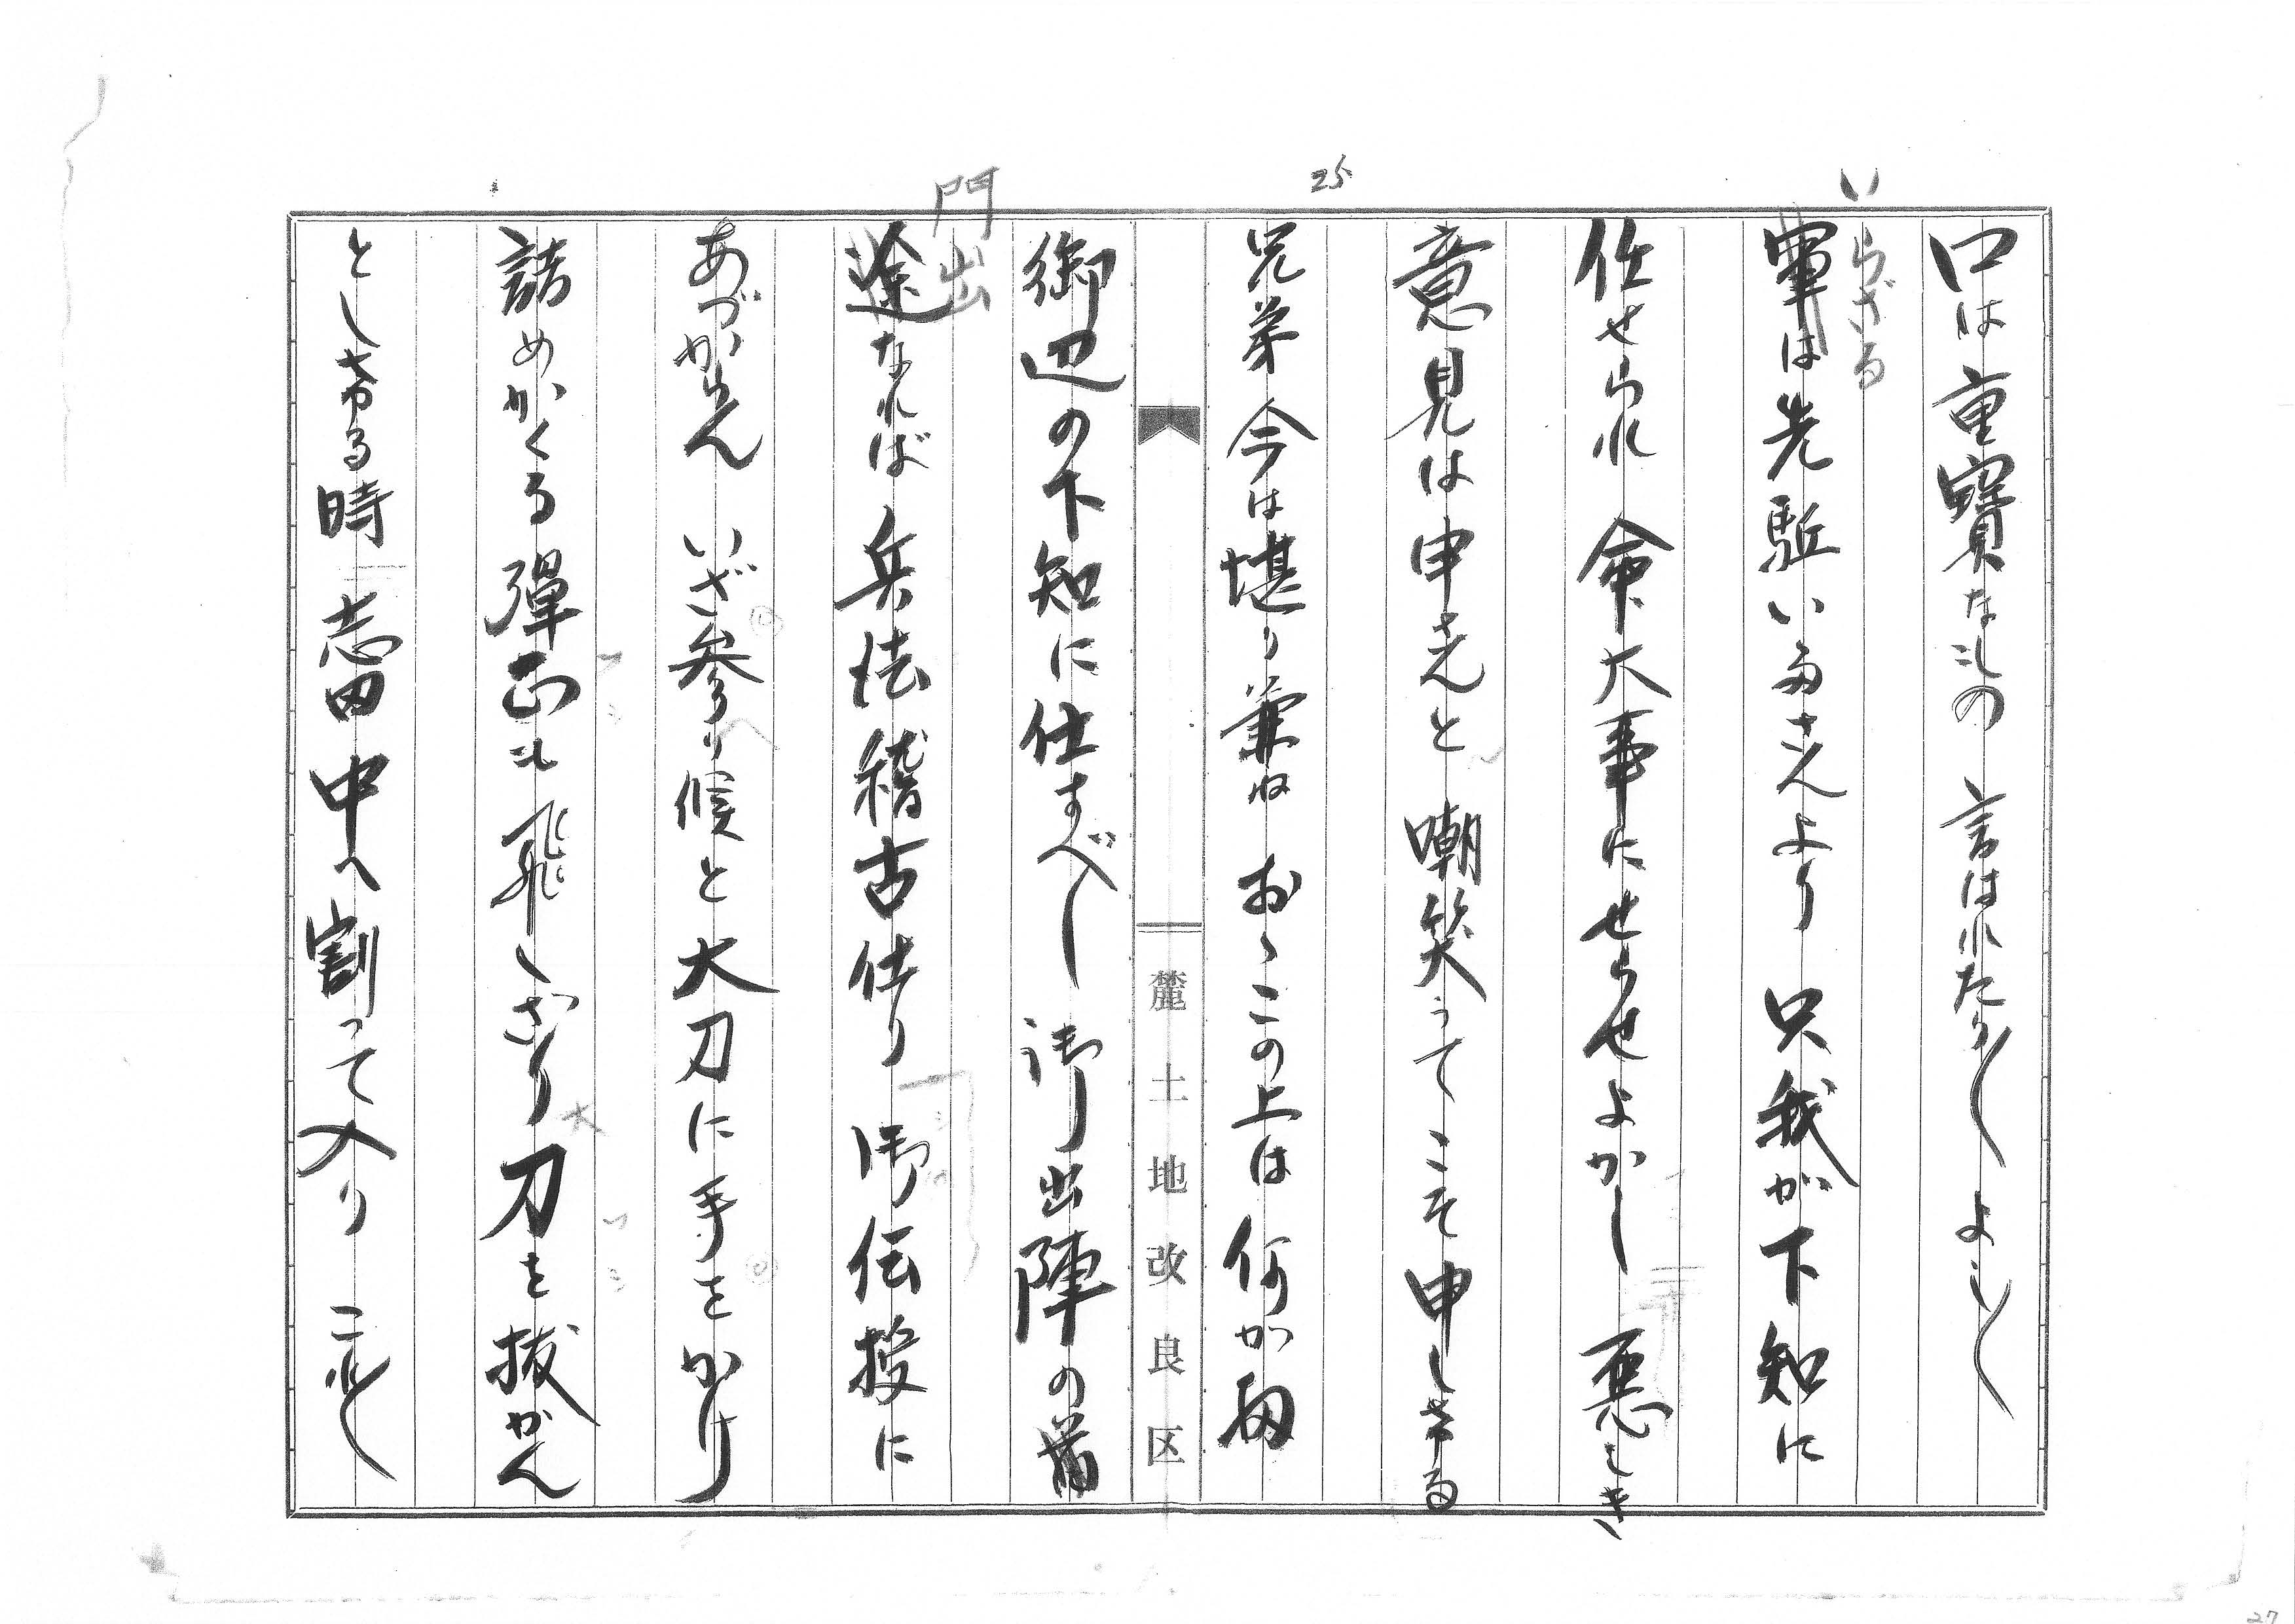 い
らざる
口は重寶なもの 言はれたり〱 よし〱
軍は先駈いたさんより 只我が下知に
任せられ 命大事にせらせよかし 悪しき
意見は申さんと 嘲笑うてこそ申しける
25
兄弟今は堪り兼ね おゝこの上は何か
麓土地改良区
御辺の下知に仕すべし 御出陣の首
門出
途なれば 兵法稽古仕り 御伝授に
あづからん いざ参り候と大刀に手をかけ
詰めかくる 彈正も飛しざり刀を抜かん
大
としける時 志田中へ割って入り これ〱
27